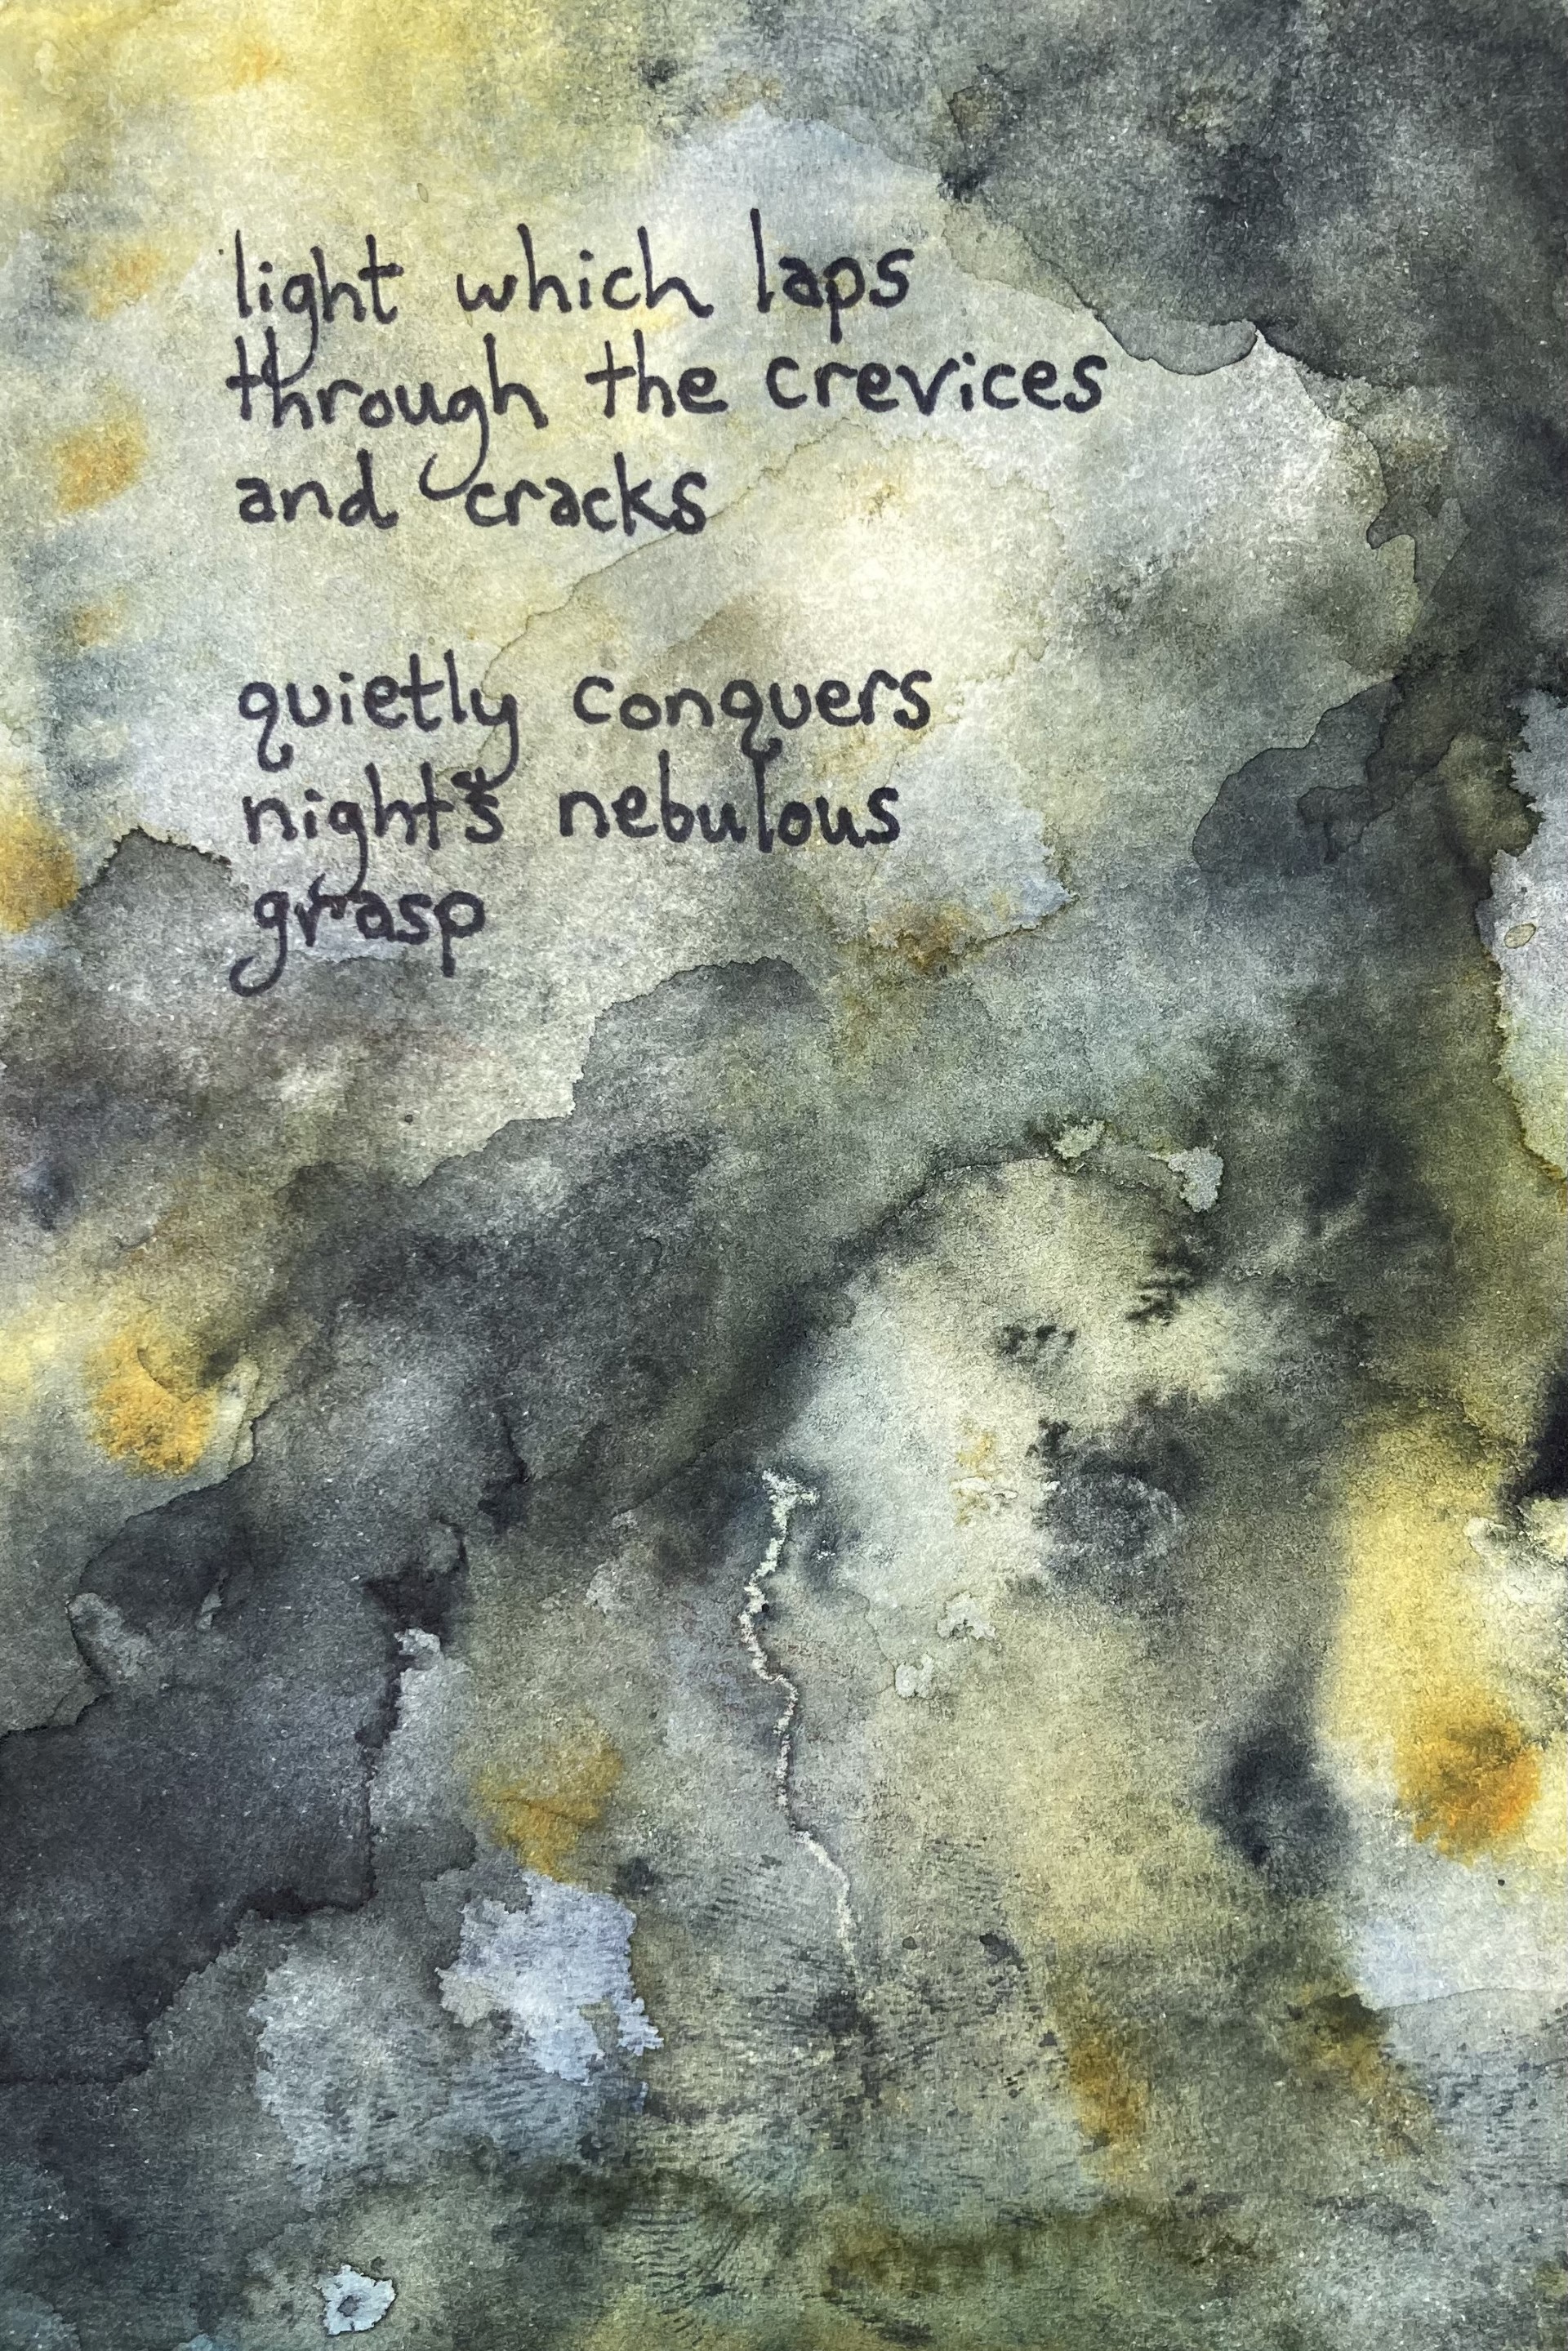 light which laps
through the crevices
and cracks
quietly conquers
night's nebulous
grasp